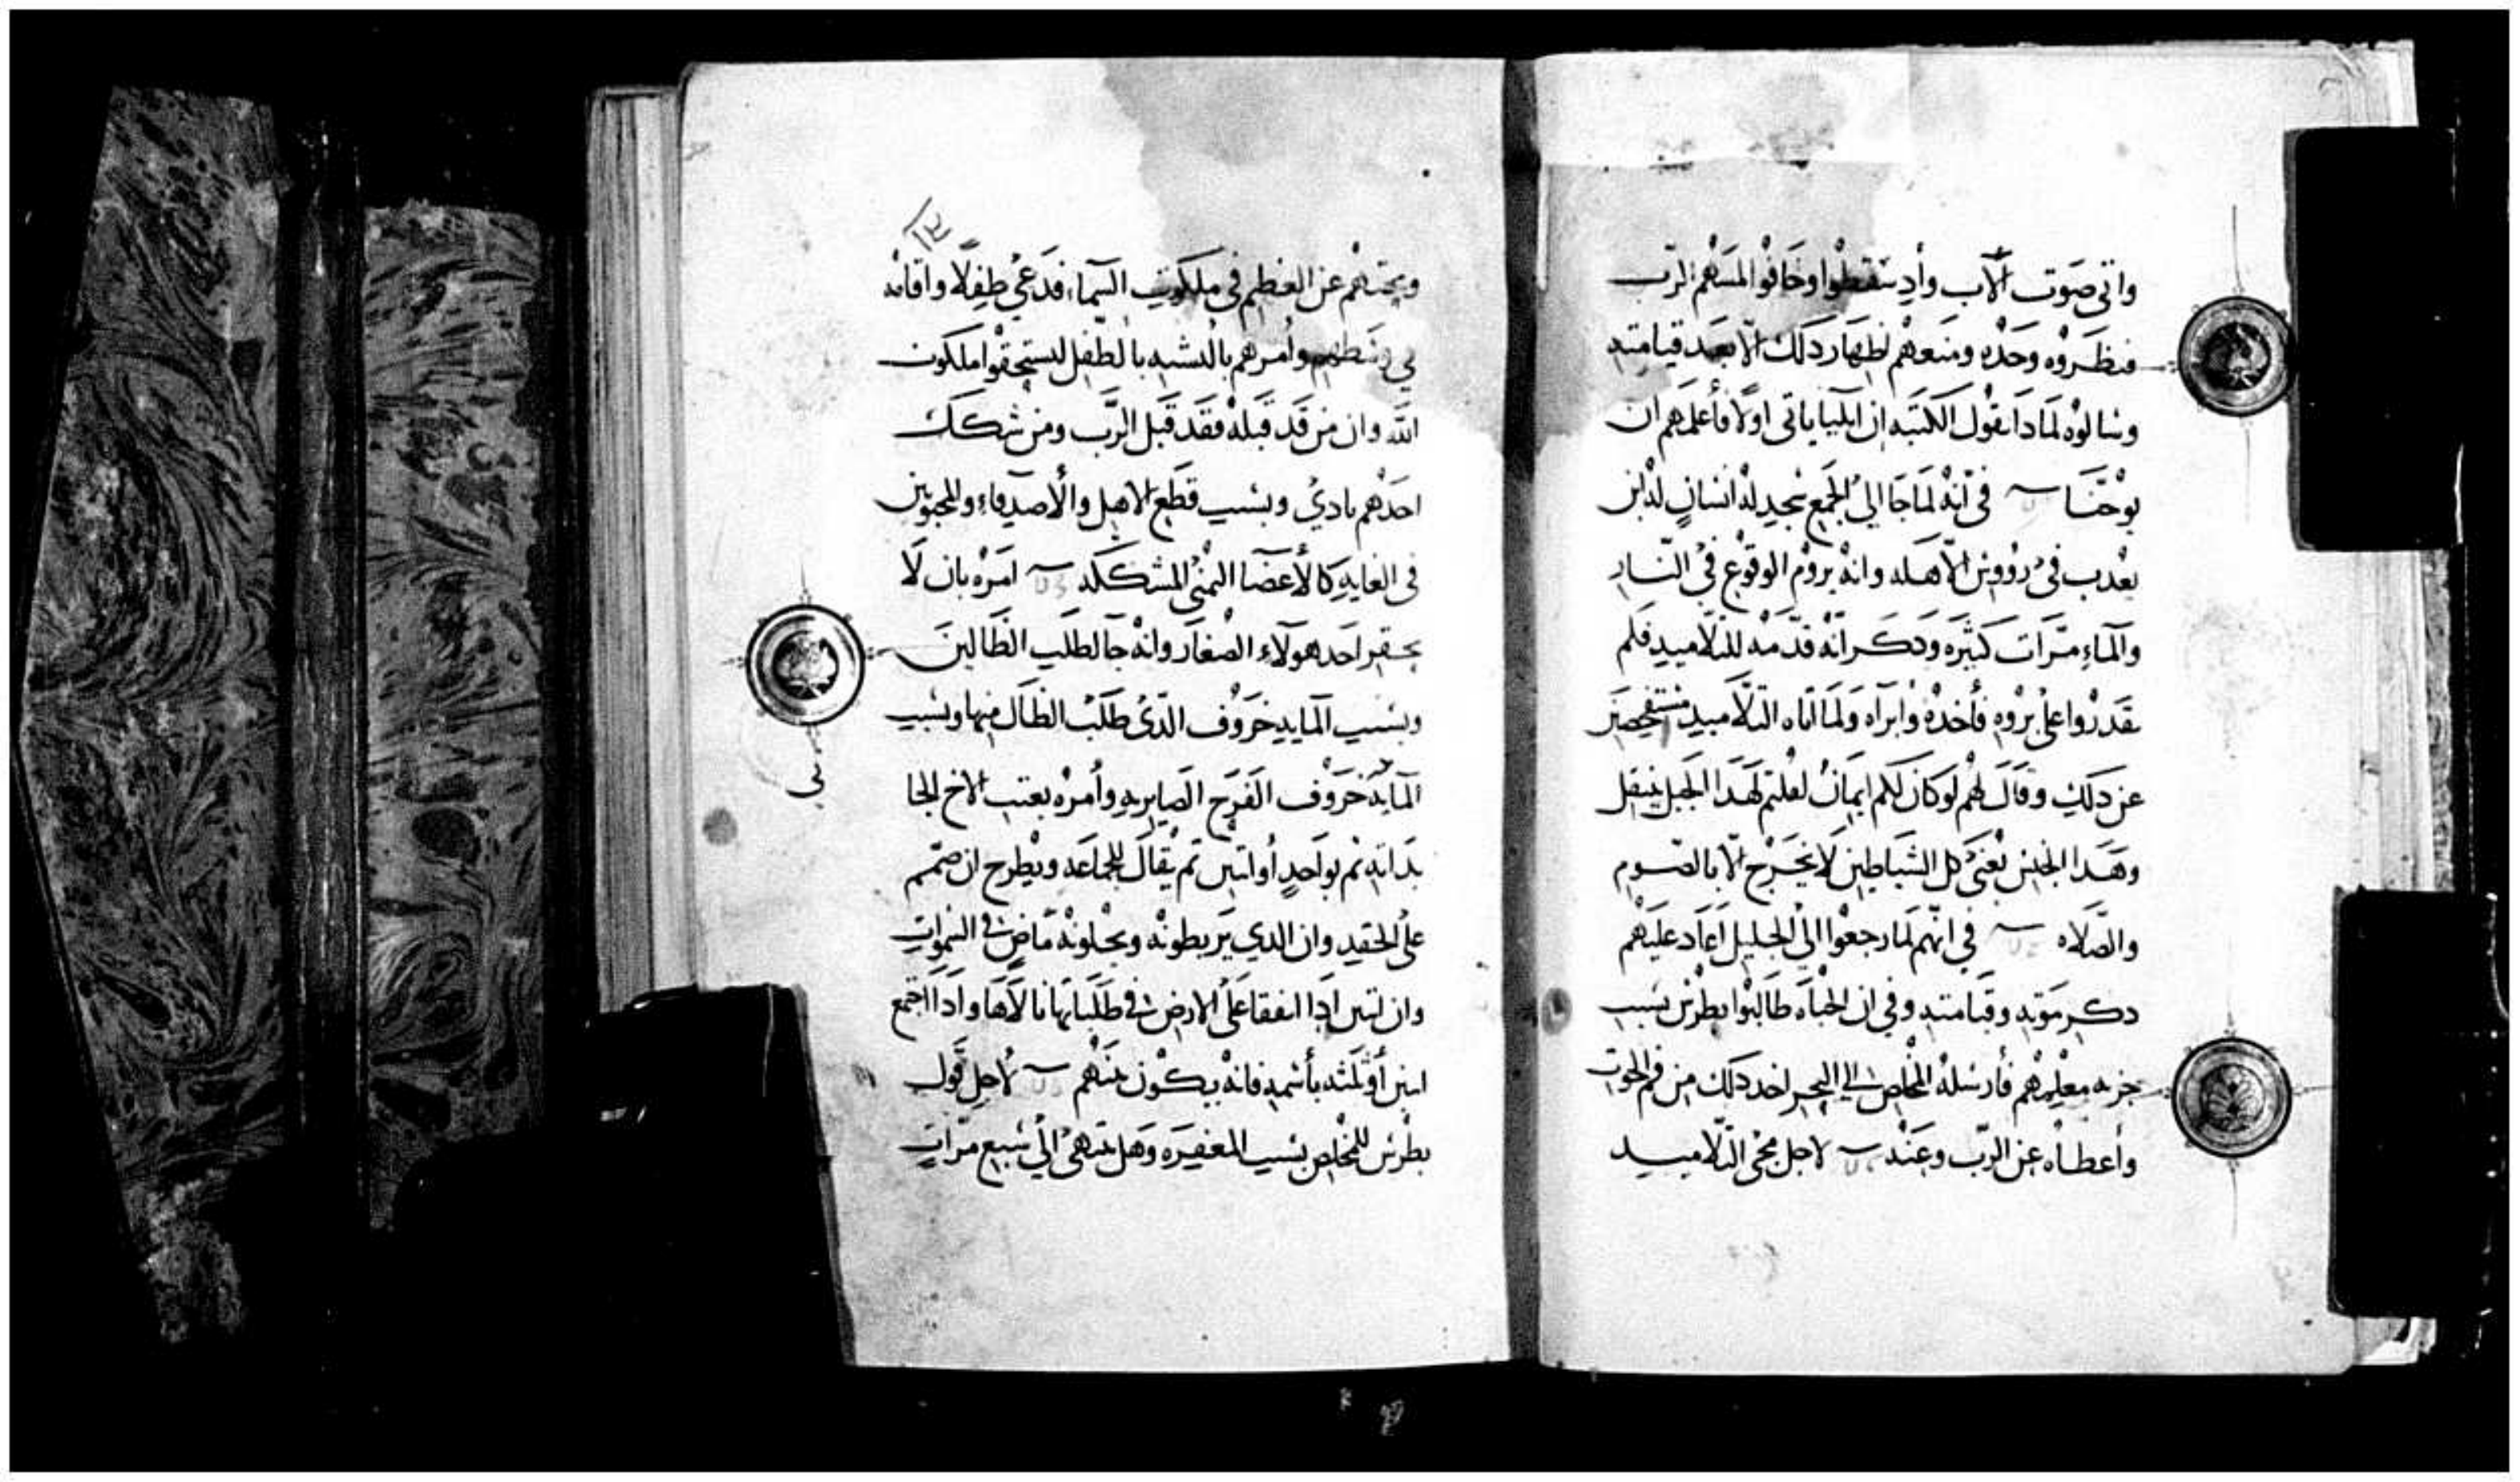 واتى صَوت الآب وأد سقطوا وخافوا لمسهم الرّب
فنظروه وحده ومنعهم اظهار دلك الّا بعد قيامته
وسالوه لمادا يقول الكتبه ان ايليا ياتى اولًا فأعلمهم ان
يوحنّا في أنّه لما جا الي الجمع سجد له انسان له ابن
يعدب في رؤوس الأهله وانه يروم الوقوع في النّار
والماء مرّات كثيره ودكر انّه قدّمه للتلاميد فلم
يقدروا على بروه فأخده وابرآه ولما اتاه التلاميد مستفحصين
عن دلك وقال لهم لو كان لكم ايمان لقلتم لهدا الجبل ينتقل
وهدا الجنس يعني كل الشياطين لا يخرج الّا بالصّوم
والصّلاه في انّهم لما رجعوا الي الجليل أعاد عليهم
دكر موته وقيامته وفي ان الجباه طالبوا بطرس بسبب
جزيه معلمهم فأرسله المخلص الي البحر اخد دلك من فم الحوت
وأعطاه عن الرّب وعنه لاجل مجي التلاميد
١٢
وبحتهم عن العظيم في ملكوت السماء فدعي طفلًا واقامه
في وسطهم وأمرهم بالتشبه بالطفل ليستحقوا ملكوت
الله وان من قد قبله فقد قبل الرّب ومن شكك
احدهم يادي وبسبب قطع الاهل والأصدقاء والمحبوبين
في الغايه كالأعضا اليمني المشككه امره بان لا
يحتقر احد هولاء الصغار وانه جا لطلب الضالين
وبسبب المايه خروف الدّي طلب الضال منها وبسبب
المايه خروف الفرح الصاير به وأمره بعتب الاخ الجا
بداته ثم بواحدٍ أو اتنين ثم يقال للجماعه ويطرح ان صمّم
على الحقد وان الدي يربطونه ويحلونه ماض في السموات
وان اتنين ادا اتفقا على الارض في طلباتهما نالاها وادا اجتمع
اتنين أو ثلثه بأسمه فانه يكون بينهم لاجل قول
بطرس للمخلص بسبب المغفره وهل تتهي الي سبع مرّات